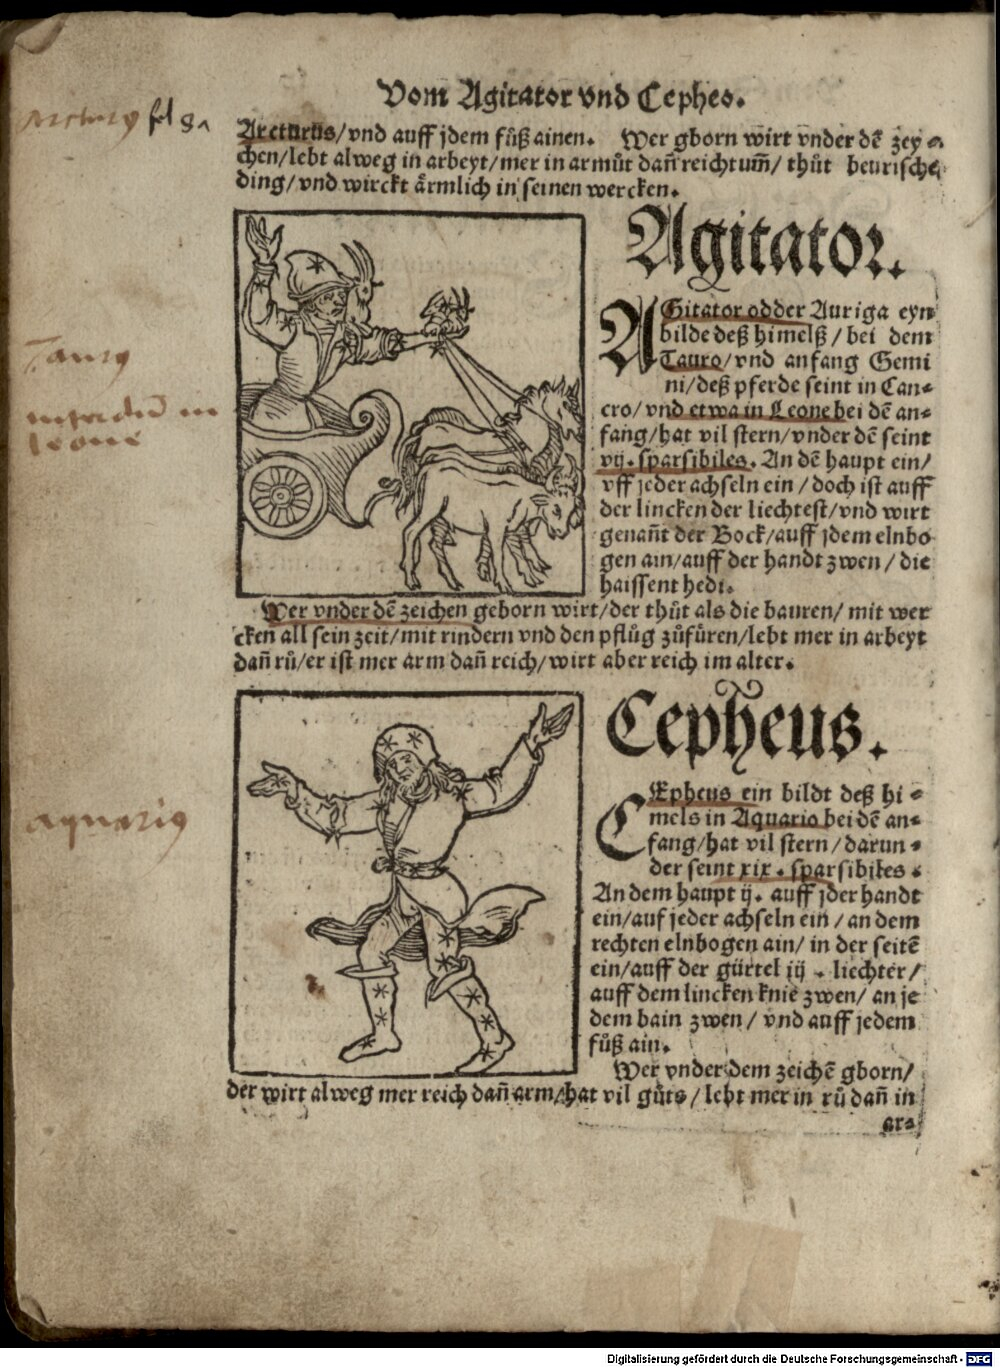 Vom Agitator vnd Cepheo.
Arcturus fol 8
Arcturus/vnd auff jdem fůß ainen. Wer gborn wirt vnder dē zey⸗
chen/lebt alweg in arbeyt/mer in armůt dañ reichtum̄/ thůt beurische
ding/vnd wirckt aͤrmlich in seinen wercken.
Agitator.
AGitator odder Auriga eyn
bilde deß himelß/ bei dem
Tauro/vnd anfang Gemi
ni/deß pferde seint in Can⸗
cro/vnd etwa in Leone bei dē an⸗
fang/hat vil stern/vnder dē seint
vij. sparsibiles. An dē haupt ein/
vff jeder achseln ein/doch ist auff
der lincken der liechtest/vnd wirt
genañt der Bock/auff jdem elnbo
gen ain/auff der handt zwen/die
haissent hedi.
Taurus
interdū in
leone
Wer vnder dē zeichen geborn wirt/der thůt als die bauren/ mit wer
cken all sein zeit/mit rindern vnd den pflůg zůfůren/lebt mer in arbeyt
dañ rů/er ist mer arm dañ reich/wirt aber reich im alter.
Cepheus.
CEpheus ein bildt deß hi⸗
mels in Aquario bei dē an⸗
fang/hat vil stern/darun⸗
der seint xix. sparsibiles.
An dem haupt ij. auff jder handt
ein/auf jeder achseln ein/an dem
rechten elnbogen ain/in der seitē
ein/auff der gürtel iij. liechter/
auff dem lincken knie zwen/an je
dem bain zwen/vnd auff jedem
fůß ain.
aquarius
Wer vnder dem zeichē gborn/
der wirt alweg mer reich dañ arm/hat vil gůts/lebt mer in rů dañ in
ar⸗
Digitalisierung gefördert durch die Deutsche Forschungsgemeinschaft - DFG